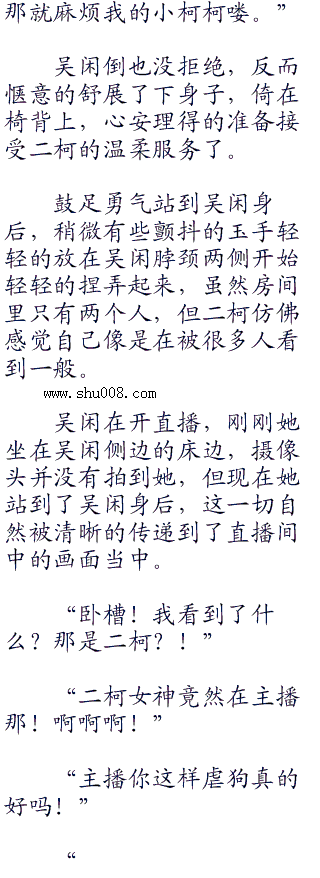 那就麻烦我的小柯柯喽。”
吴闲倒也没拒绝，反而
惬意的舒展了下身子，倚在
椅背上，心安理得的准备接
受二柯的温柔服务了。
鼓足勇气站到吴闲身
后，稍微有些颤抖的玉手轻
轻的放在吴闲脖颈两侧开始
轻轻的捏弄起来，虽然房间
里只有两个人，但二柯仿佛
感觉自己像是在被很多人看
到一般。
www.shu008.com
吴闲在开直播，刚刚她
坐在吴闲侧边的床边，摄像
头并没有拍到她，但现在她
站到了吴闲身后，这一切自
然被清晰的传递到了直播间
中的画面当中。
“卧槽！我看到了什
么？那是二柯？！”
“二柯女神竟然在主播
那！啊啊啊！”
“主播你这样虐狗真的
好吗！”
“